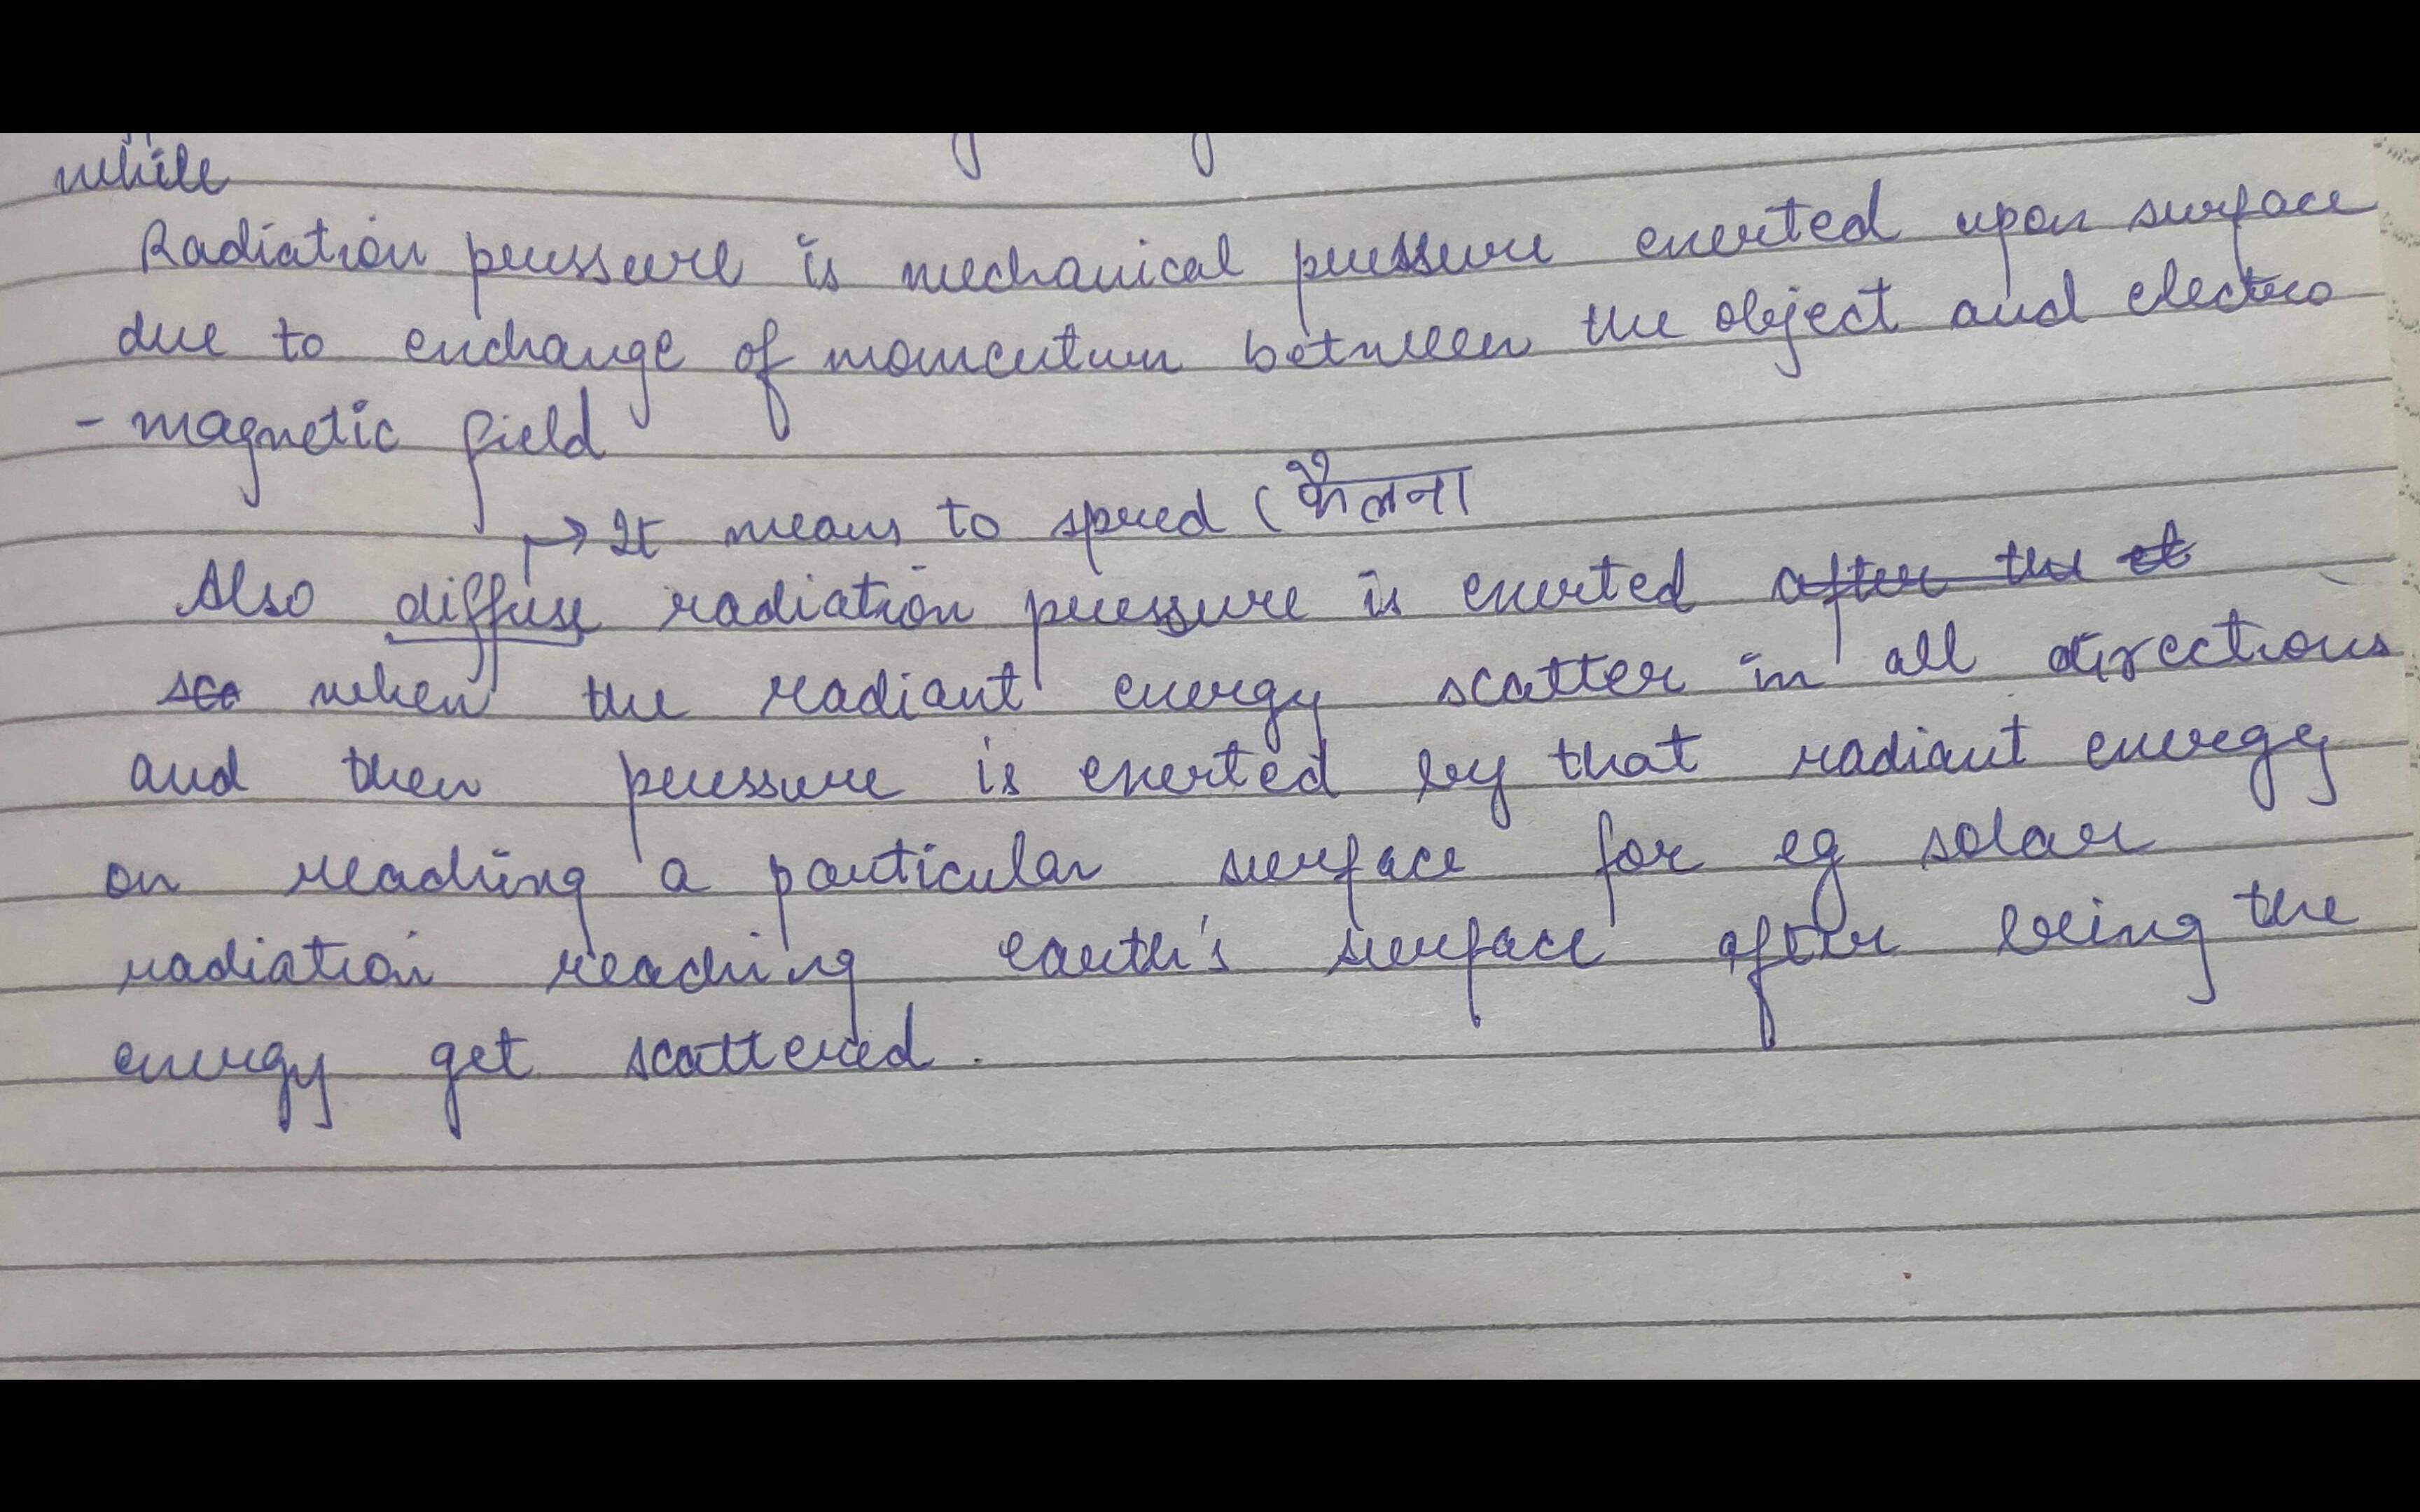 while
Radiation pressure is mechanical pressure exerted upon surface
due to exchange of momentum between the object and electro
- magnetic field
→ It means to spred (फैलना
Also diffuse radiation pressure is exerted after the et
sca when the radiant energy scatter in all directions
and then pressure is exerted by that radiant energy
on reaching a particular surface for eg solar
radiation reaching earth's surface after being the
energy get scattered.